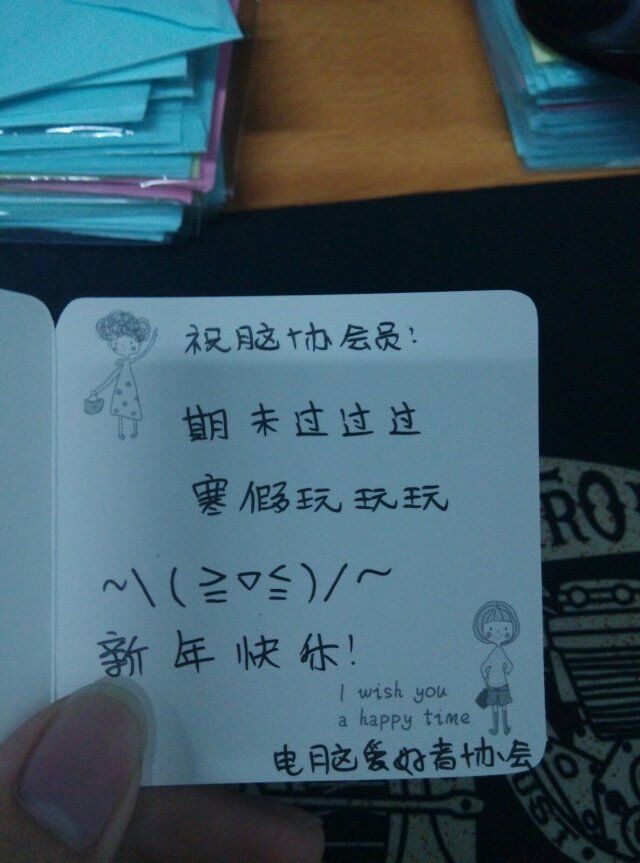 祝脑协会员!
期末过过过
寒假玩玩玩
~\(≧▽≦)/~
新年快乐!
I wish you
a happy time
电脑爱好者协会
RO
UST